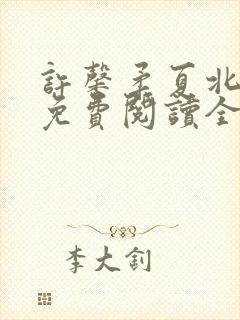 許馨矛夏北
免費閱讀全
李大釗